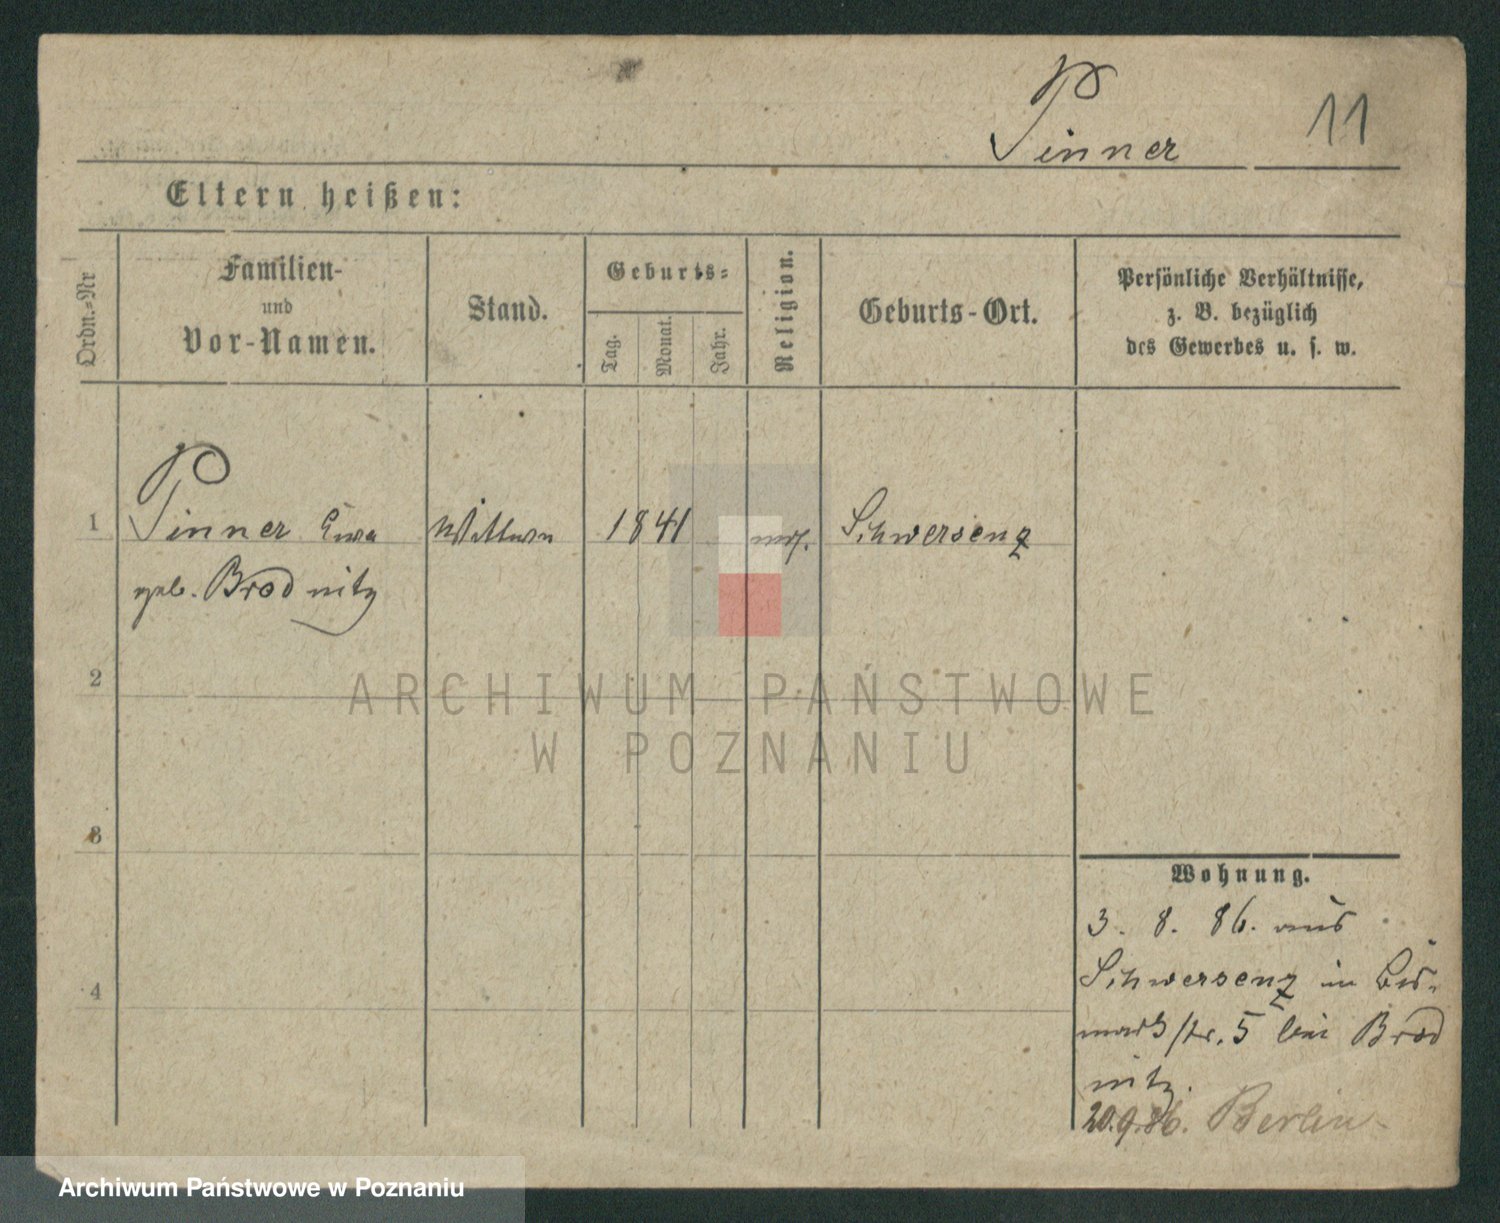 Pinner
11
Eltern heißen:
Ordn.-Nr
Familien-
und
Vor-Namen.
Stand.
Geburts-
Tag.
Monat.
Jahr.
Religion.
Geburts-Ort.
Persönliche Verhältnisse,
z. B. bezüglich
des Gewerbes u. s. w.
1
Pinner Ewa
geb. Brodnitz
Wittwe
1841
mos.
Schwersenz
2
3
4
Wohnung.
3. 8. 86. aus
Schwersenz in Bis-
markstr. 5 bei Brod
nitz.
20.9.86. Berlin
ARCHIWUM PAŃSTWOWE
W POZNANIU
Archiwum Państwowe w Poznaniu